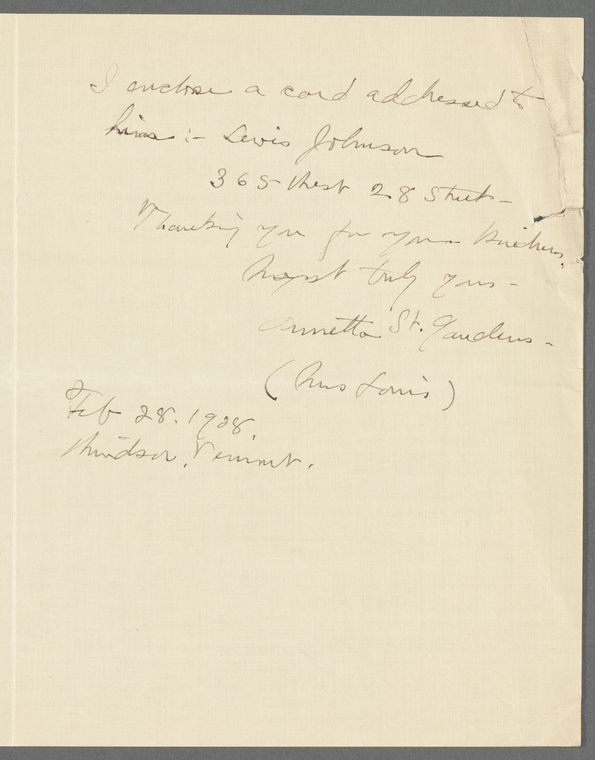 I enclose a card addressed to
him :- Lewis Johnson
365 West 28 Street -
Thanking you for your kindness.
Most truly yours -
Annetta St. Gaudens -
(Mrs Louis)
Feb 28. 1908.
Windsor. Vermont.